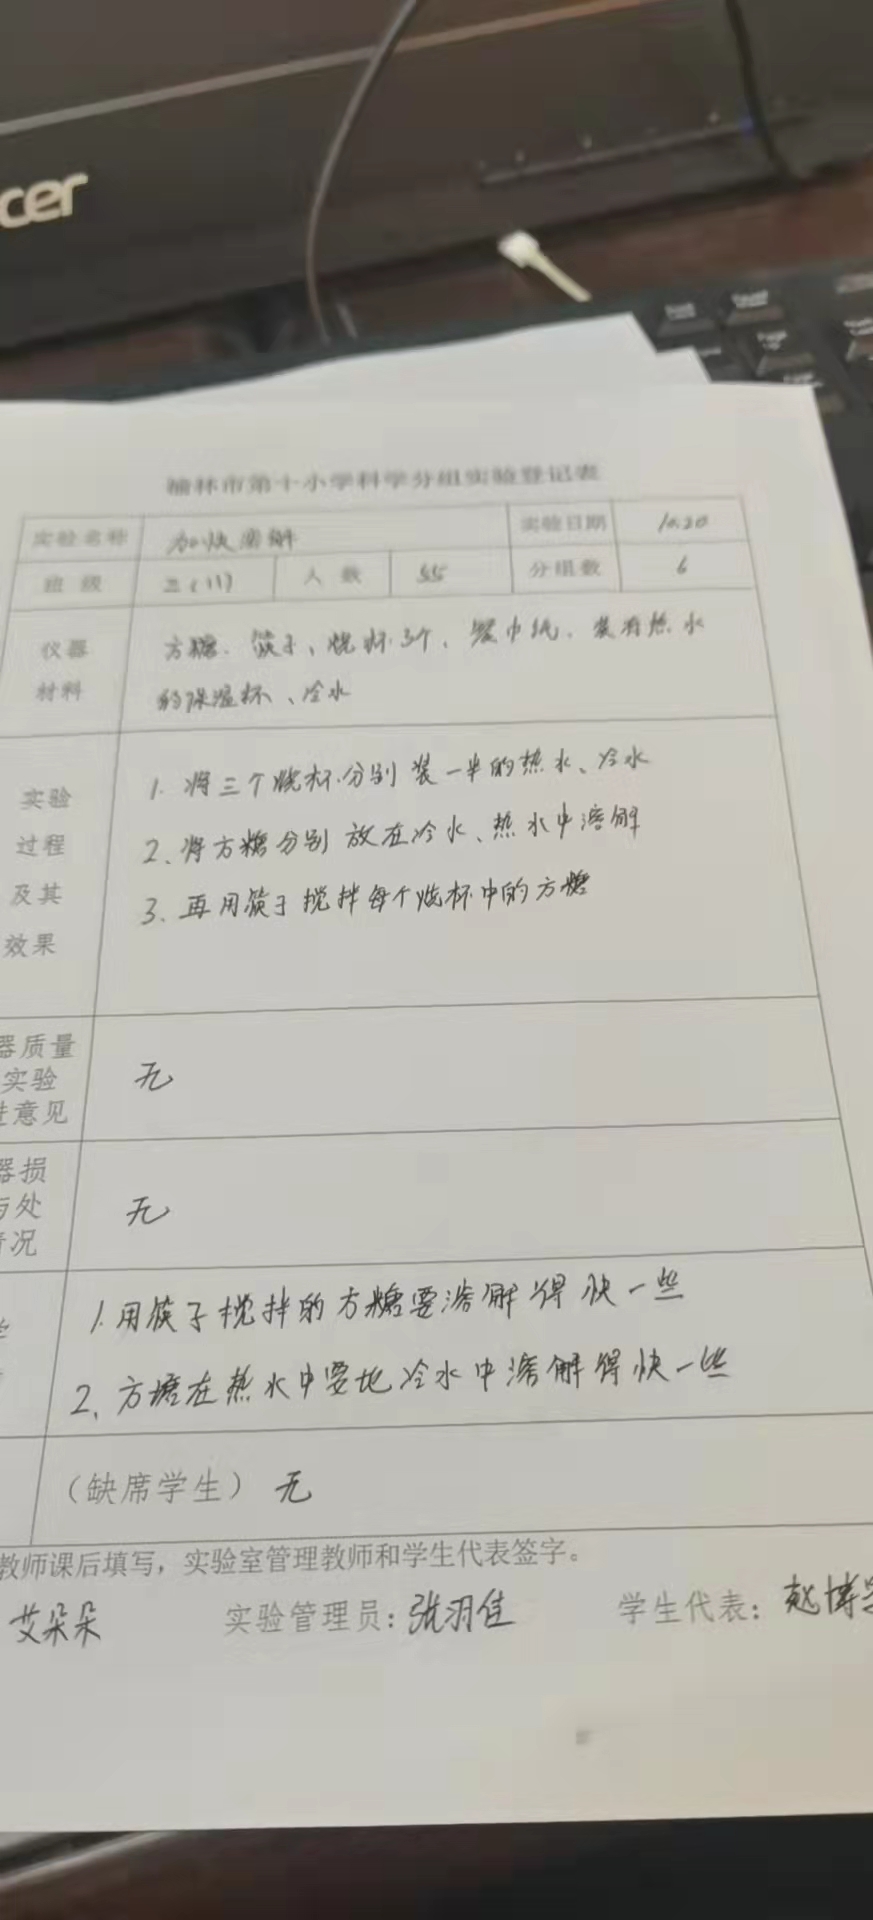 cer
榆林市第十小学科学分组实验登记表
实验名称 加快溶解 实验日期 10.20
班 级 三(11) 人 数 55 分组数 6
仪器 方糖、筷子、烧杯3个、餐巾纸、装有热水
材料 的保温杯、冷水
实验 1. 将三个烧杯分别装一半的热水、冷水
过程 2. 将方糖分别放在冷水、热水中溶解
及其 3. 再用筷子搅拌每个烧杯中的方糖
效果
器质量
实验 无
意见
器损
与处 无
情况
1. 用筷子搅拌的方糖要溶解得快一些
2. 方糖在热水中要比冷水中溶解得快一些
（缺席学生）无
教师课后填写，实验室管理教师和学生代表签字。
艾朵朵 实验管理员：张羽佳 学生代表：赵博